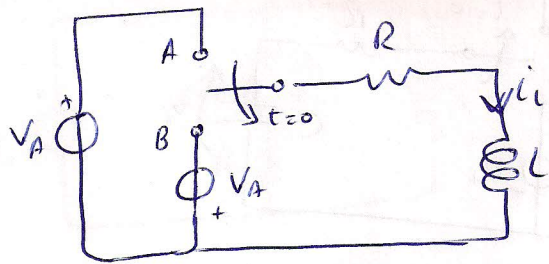 A
R
+
t=0
iL
VA
B
L
VA
+